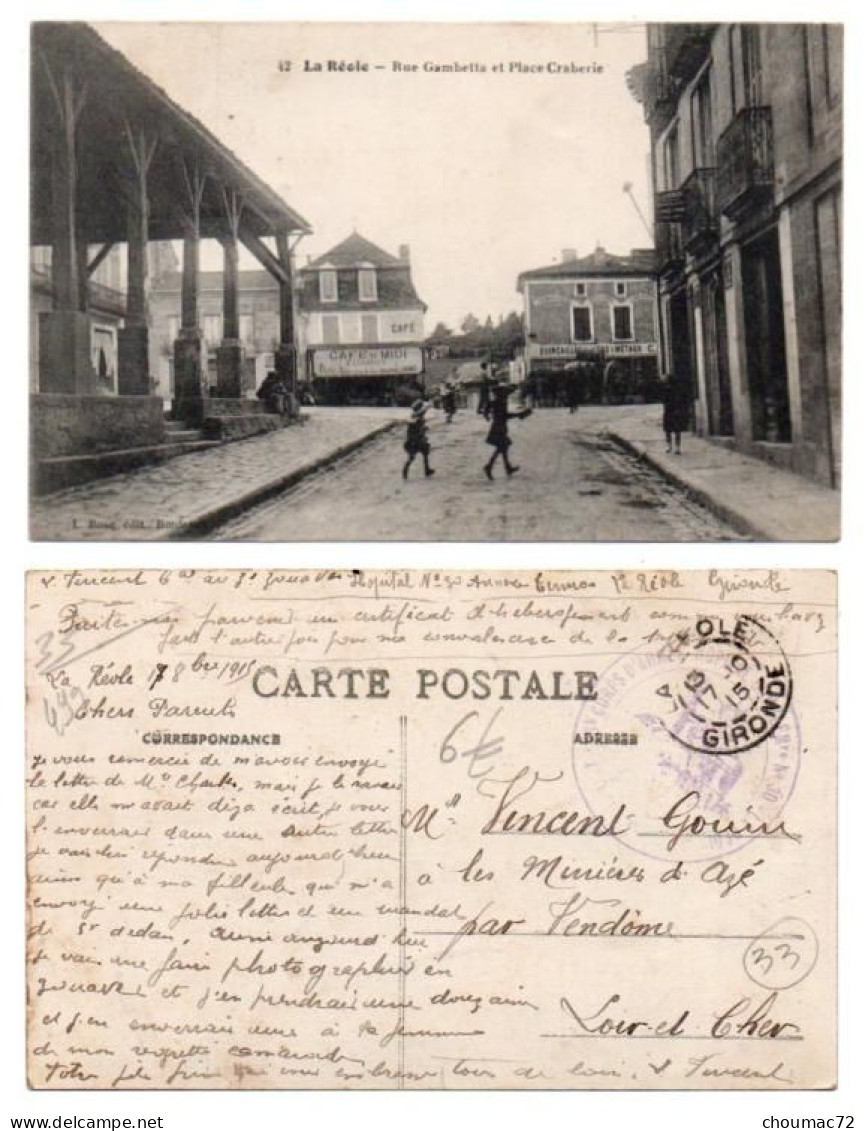 42 La Réole – Rue Gambetta et Place Craberie
CAFÉ
CAFÉ DU MIDI
L. Bosq, édit. Bordeaux
Vincent au 3e zouaves Hopital No 30 Annexe La Réole Gironde
Faites moi parvenir un certificat d'hébergement comme
pour ma convalescence de la
33
La Réole 17 8bre 1915
Chers Parents
CARTE POSTALE
CORRESPONDANCE
ADRESSE
LA REOLE
17 -10
15
GIRONDE
No 30
6€
je vous remercie de m'avoir envoyé
la lettre de Mr Charles, mais je le savais
car elle m'avait déja écrit, je vous
l'enverrai dans une autre lettre
je vais lui répondre aujourd'hui
ainsi qu'à ma filleule qui m'a
envoyé une jolie lettre et un mandat
de aussi aujourd'hui
je vais me faire photographier en
zouave et j'en prendrai une douzaine
et j'en enverrai une à la femme
de mon regretté camarade
Votre fils qui vous embrasse tous de loin, Vincent
Mr Vincent Gouin
à les Minières d'Azé
par Vendôme
Loir-et-Cher
33
choumac72